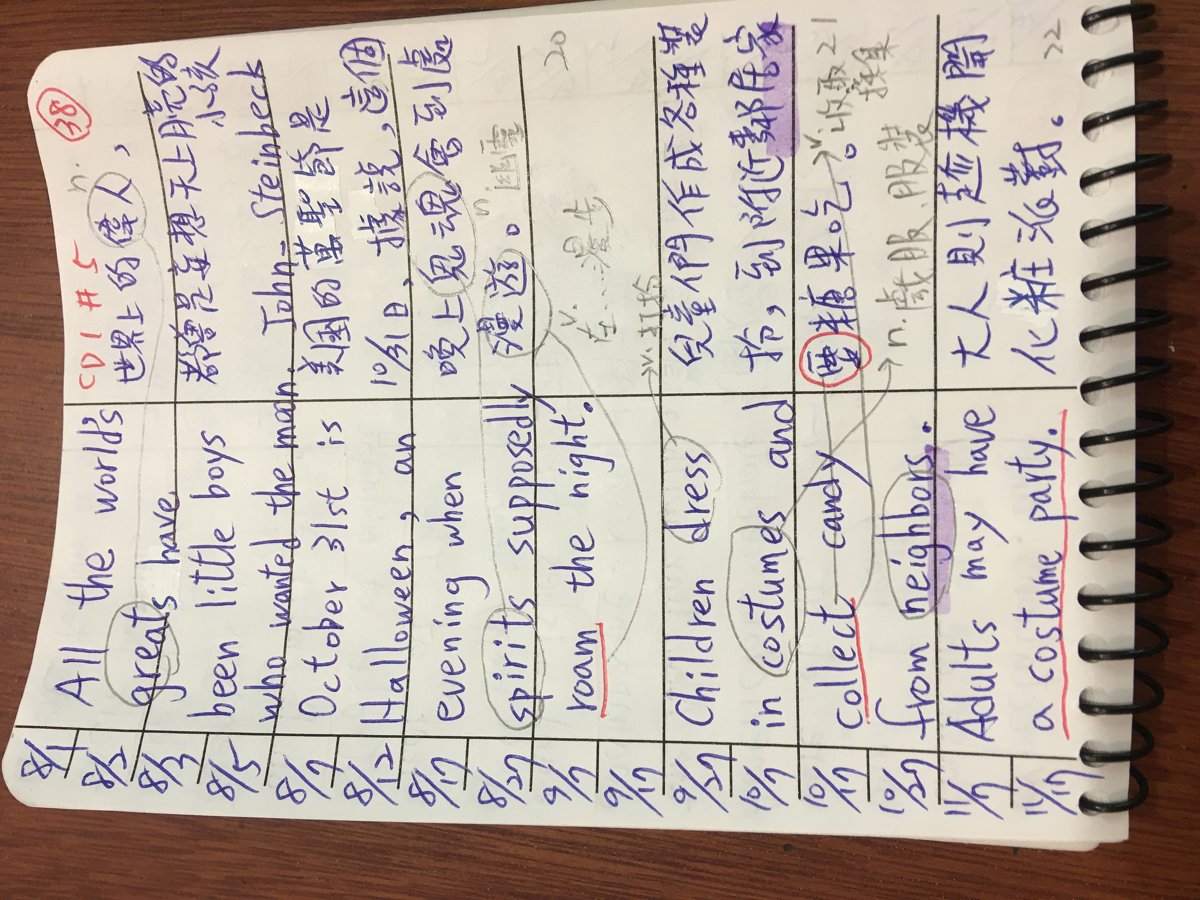 CD1 #5
n.
38
8/1
8/2
8/3
8/5
8/7
8/12
8/17
8/27
9/7
9/17
9/27
10/7
10/17
10/27
11/7
11/17
All the world's
greats have
been little boys
who wante the moon. John Steinbeck
October 31st is
Halloween, an
evening when
spirits supposedly
roam the night.
Children dress
in costumes and
collect candy
from neighbors.
Adults may have
a costume party.
世界上的偉人,
都曾是妄想天上月亮的
小孩
美國的萬聖節是
10/31日,據說,這個
晚上鬼魂會到處
漫遊。
n. 幽靈
v.
在...漫步
20
v.打扮
兒童們作成各種裝
扮,到附近鄰居家
要糖果吃。
v.收取
採集
21
n.戲服、服裝
大人則趁機開
化粧派對。
22